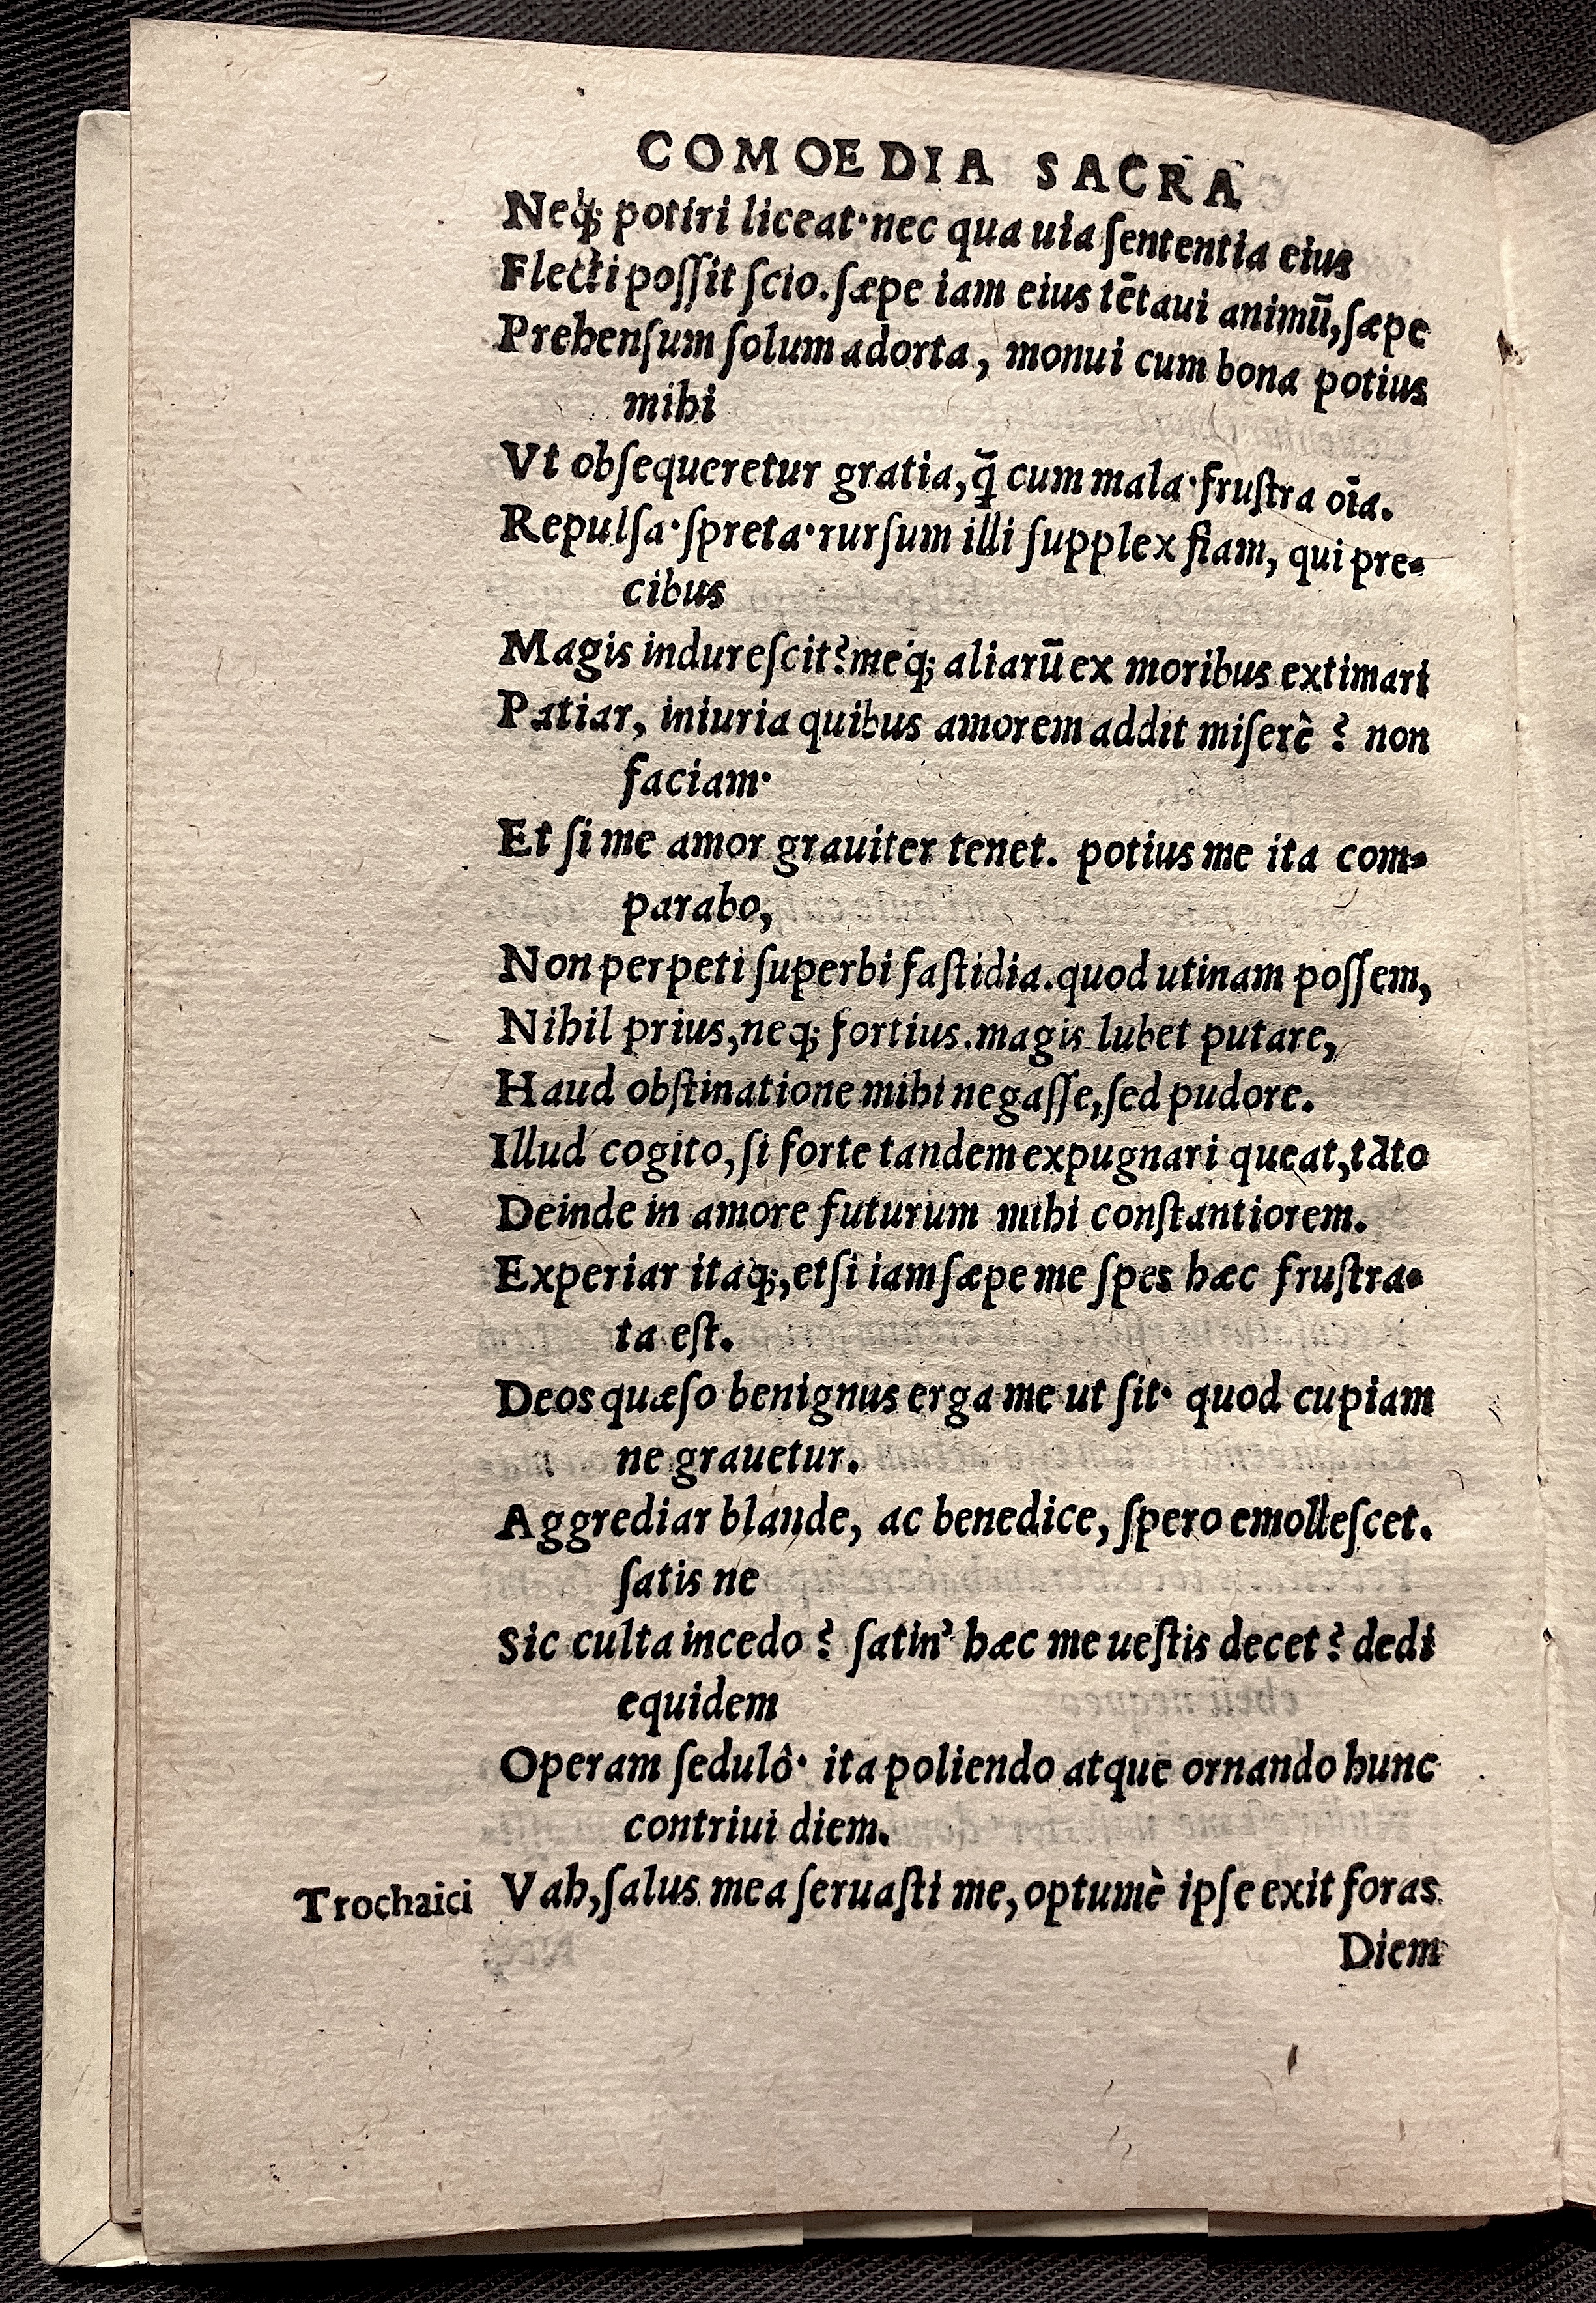 COMOEDIA SACRA
Neq; potiri liceat·nec qua uia ſententia eius
Flecti poſſit ſcio.ſæpe iam eius tētaui animū,ſæpe
Prehenſum ſolum adorta, monui cum bona potius
mihi
Vt obſequeretur gratia,q̄ cum mala·fruſtra oīa.
Repulſa·ſpreta·rurſum illi ſupplex fiam, qui pre-
cibus
Magis indureſcit?meq; aliarū ex moribus extimari
Patiar, iniuria quibus amorem addit miſerè ? non
faciam·
Et ſi me amor grauiter tenet. potius me ita com-
parabo,
Non perpeti ſuperbi faſtidia.quod utinam poſſem,
Nihil prius,neq; fortius.magis lubet putare,
Haud obſtinatione mihi negaſſe,ſed pudore.
Illud cogito,ſi forte tandem expugnari queat,tāto
Deinde in amore futurum mihi conſtantiorem.
Experiar itaq;,etſi iam ſæpe me ſpes hæc fruſtra-
ta eſt.
Deos quæſo benignus erga me ut ſit· quod cupiam
ne grauetur.
Aggrediar blande, ac benedice, ſpero emolleſcet.
ſatis ne
Sic culta incedo ? ſatin' hæc me ueſtis decet ? dedi
equidem
Operam ſedulô· ita poliendo atque ornando hunc
contriui diem.
Trochaici Vah,ſalus mea ſeruaſti me,optumè ipſe exit foras
Diem